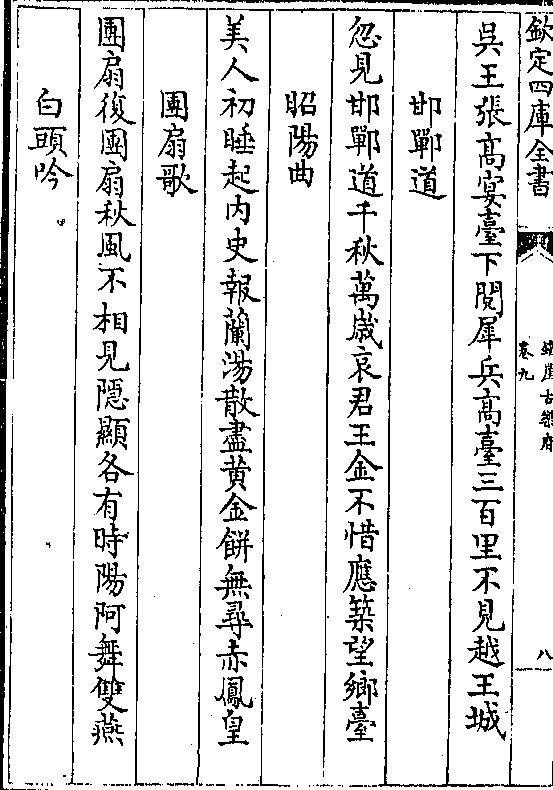 欽定四庫全書
鐵崖古樂府
卷九
八
吳王張髙宴臺下閱犀兵髙臺三百里不見越王城
邯鄲道
忽見邯鄲道千秋萬歲哀君王金不惜應築望鄉臺
昭陽曲
美人初睡起内史報蘭湯散盡黄金餅無尋赤鳳皇
團扇歌
團扇復團扇秋風不相見隱顯各有時陽阿舞雙燕
白頭吟